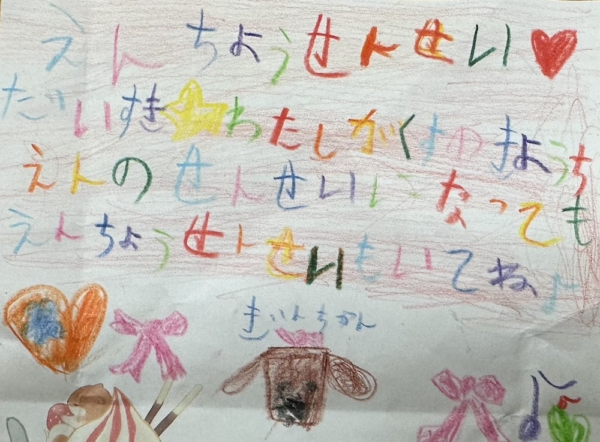 えんちょうせんせい
だいすきわたしがくすのきようち
えんのせんせいになっても
えんちょうせんせいもいてねよ
きいんちかん